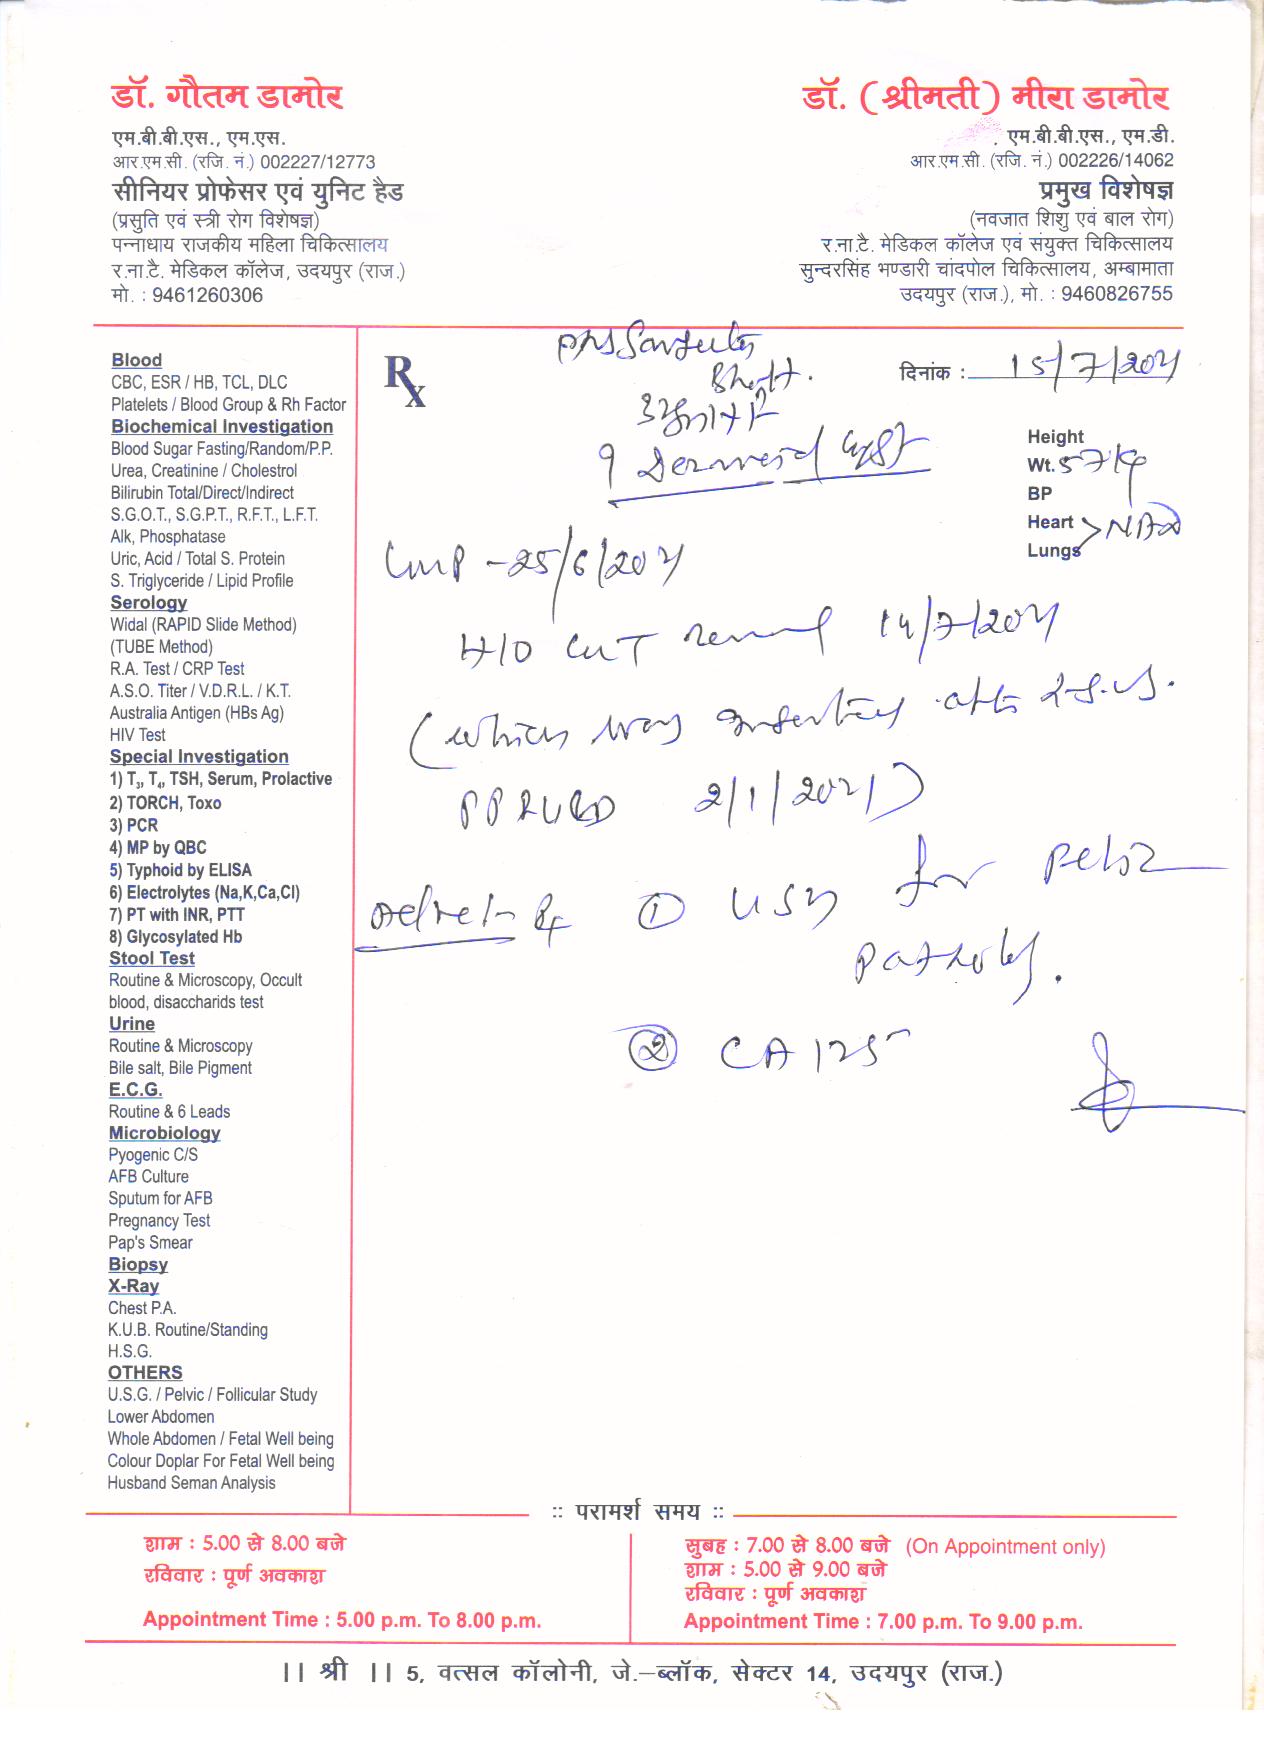 डॉ. गौतम डामोर
एम.बी.बी.एस., एम.एस.
आर.एम.सी. (रजि. नं.) 002227/12773
सीनियर प्रोफेसर एवं युनिट हैड
(प्रसुति एवं स्त्री रोग विशेषज्ञ)
पन्नाधाय राजकीय महिला चिकित्सालय
र.ना.टै. मेडिकल कॉलेज, उदयपुर (राज.)
मो. : 9461260306
डॉ. (श्रीमती) मीरा डामोर
एम.बी.बी.एस., एम.डी.
आर.एम.सी. (रजि. नं.) 002226/14062
प्रमुख विशेषज्ञ
(नवजात शिशु एवं बाल रोग)
र.ना.टै. मेडिकल कॉलेज एवं संयुक्त चिकित्सालय
सुन्दरसिंह भण्डारी चांदपोल चिकित्सालय, अम्बामाता
उदयपुर (राज.), मो. : 9460826755
Blood
CBC, ESR / HB, TCL, DLC
Platelets / Blood Group & Rh Factor
Biochemical Investigation
Blood Sugar Fasting/Random/P.P.
Urea, Creatinine / Cholestrol
Bilirubin Total/Direct/Indirect
S.G.O.T., S.G.P.T., R.F.T., L.F.T.
Alk, Phosphatase
Uric, Acid / Total S. Protein
S. Triglyceride / Lipid Profile
Serology
Widal (RAPID Slide Method)
(TUBE Method)
R.A. Test / CRP Test
A.S.O. Titer / V.D.R.L. / K.T.
Australia Antigen (HBs Ag)
HIV Test
Special Investigation
1) T3, T4, TSH, Serum, Prolactive
2) TORCH, Toxo
3) PCR
4) MP by QBC
5) Typhoid by ELISA
6) Electrolytes (Na,K,Ca,Cl)
7) PT with INR, PTT
8) Glycosylated Hb
Stool Test
Routine & Microscopy, Occult
blood, disaccharids test
Urine
Routine & Microscopy
Bile salt, Bile Pigment
E.C.G.
Routine & 6 Leads
Microbiology
Pyogenic C/S
AFB Culture
Sputum for AFB
Pregnancy Test
Pap's Smear
Biopsy
X-Ray
Chest P.A.
K.U.B. Routine/Standing
H.S.G.
OTHERS
U.S.G. / Pelvic / Follicular Study
Lower Abdomen
Whole Abdomen / Fetal Well being
Colour Doplar For Fetal Well being
Husband Seman Analysis
Rx
Bhatt.
दिनांक : 15/7/2021
? Dermoid Cyst
Height
Wt. 57 kg
BP
Heart > NAD
Lungs
LMP - 25/6/2021
H/O CuT removal 14/7/2021
(which was after
2/1/2021)
① USG for Pelvic
Pathology.
② CA 125
:: परामर्श समय ::
शाम : 5.00 से 8.00 बजे
रविवार : पूर्ण अवकाश
Appointment Time : 5.00 p.m. To 8.00 p.m.
सुबह : 7.00 से 8.00 बजे (On Appointment only)
शाम : 5.00 से 9.00 बजे
रविवार : पूर्ण अवकाश
Appointment Time : 7.00 p.m. To 9.00 p.m.
|| श्री || 5, वत्सल कॉलोनी, जे.–ब्लॉक, सेक्टर 14, उदयपुर (राज.)